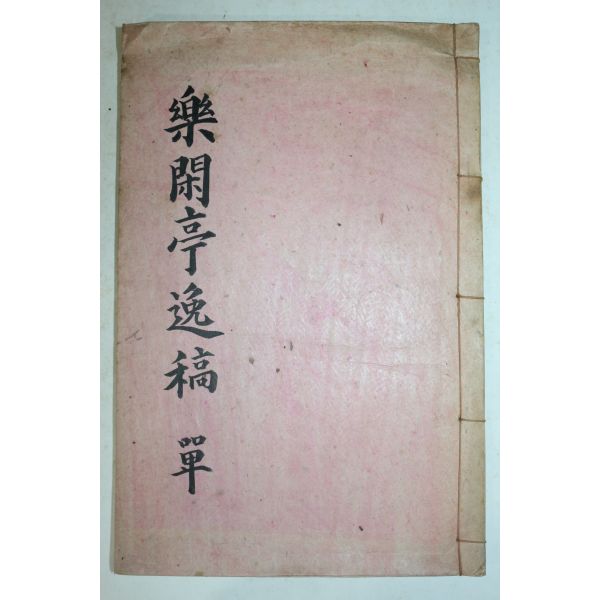 樂閑亭逸稿 單